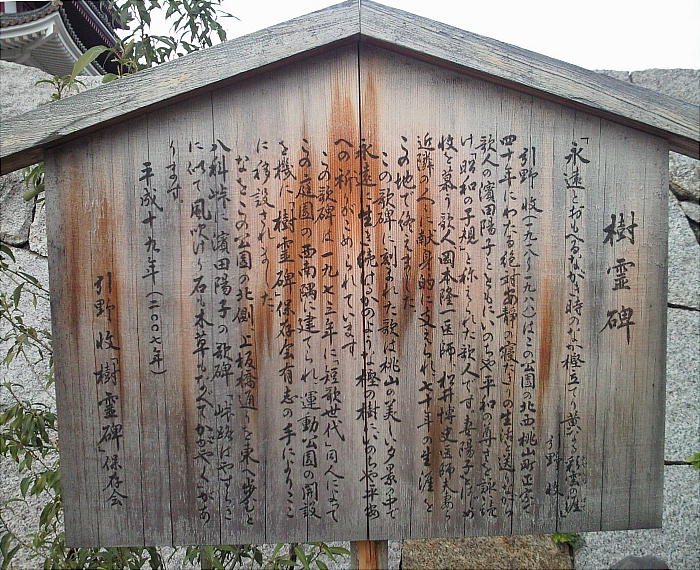 樹霊碑
「永遠とおもへるながき時のなか樫立てり黄なる彩雲の涯」
引野 收
引野 收(一九一八〜一九八八)はこの公園の北西 桃山町正宗で
四十年にわたる絶対安静の寝たきりの生活を送りながら
歌人の濱田陽子とともにいのちや平和の尊さを詠み続
け昭和の子規と称えられた歌人です。妻陽子をはじめ
收を慕う歌人岡本隆一医師、松井博史医師、また
近隣の人に献身的に支えられ、七十年の生涯を
この地で終えました。
この歌碑に刻まれた歌は、桃山の美しい夕景の中で
永遠に生き続けるかのような樫の樹に、いのちや平和
への祈りがこめられています。
この歌碑は一九七三年に「短歌世代」同人によって
この庭園の西南隅に建てられ、運動公園の開設
を機に「樹霊碑」保存会有志の手によりここ
に移設されました。
なおこの公園の北側 上板橋通りを東へ歩むと
八科峠に濱田陽子の歌碑「峠路はやすらぎ
に似て風吹けり石も木も草もなべてかがやく」があ
ります。
平成十九年(二〇〇七年)
引野 收「樹霊碑」保存会